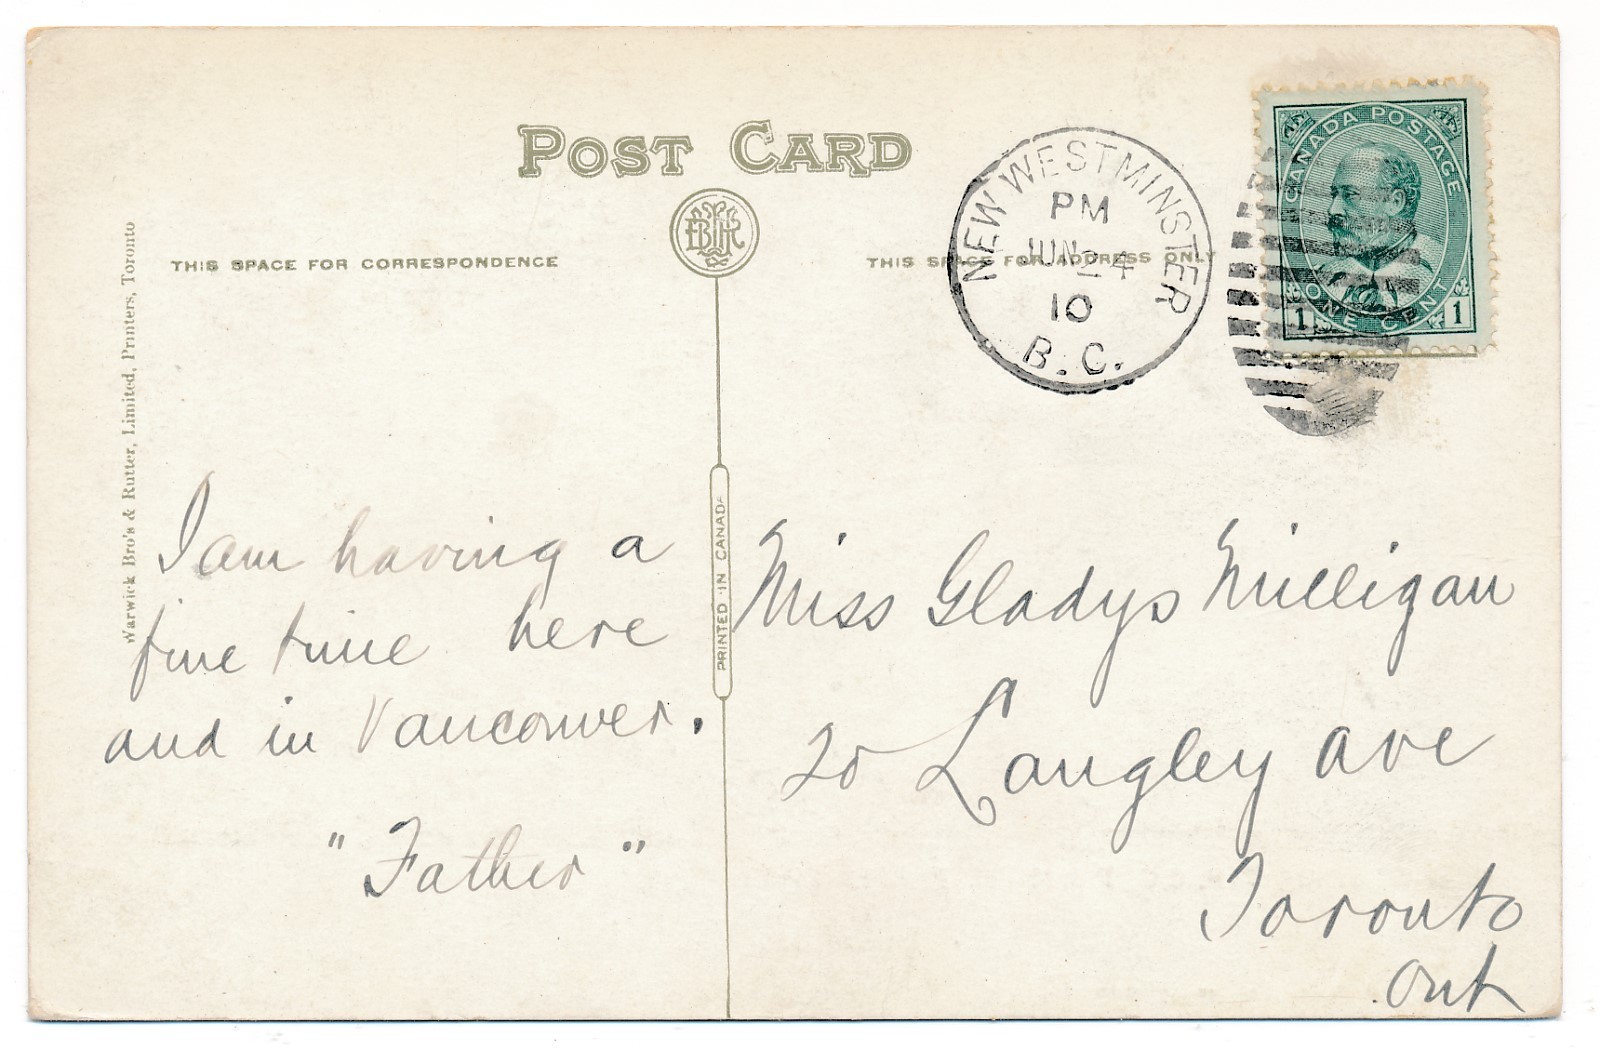 POST CARD
THIS SPACE FOR CORRESPONDENCE
THIS SPACE FOR ADDRESS ONLY
NEW WESTMINSTER
PM
JUN 24
10
B.C.
CANADA POSTAGE
ONE CENT
1 1
Warwick Bro's & Rutter, Limited, Printers, Toronto
PRINTED IN CANADA
I am having a
fine time here
and in Vancouver.
"Father"
Miss Gladys Milligan
20 Langley Ave
Toronto
Ont